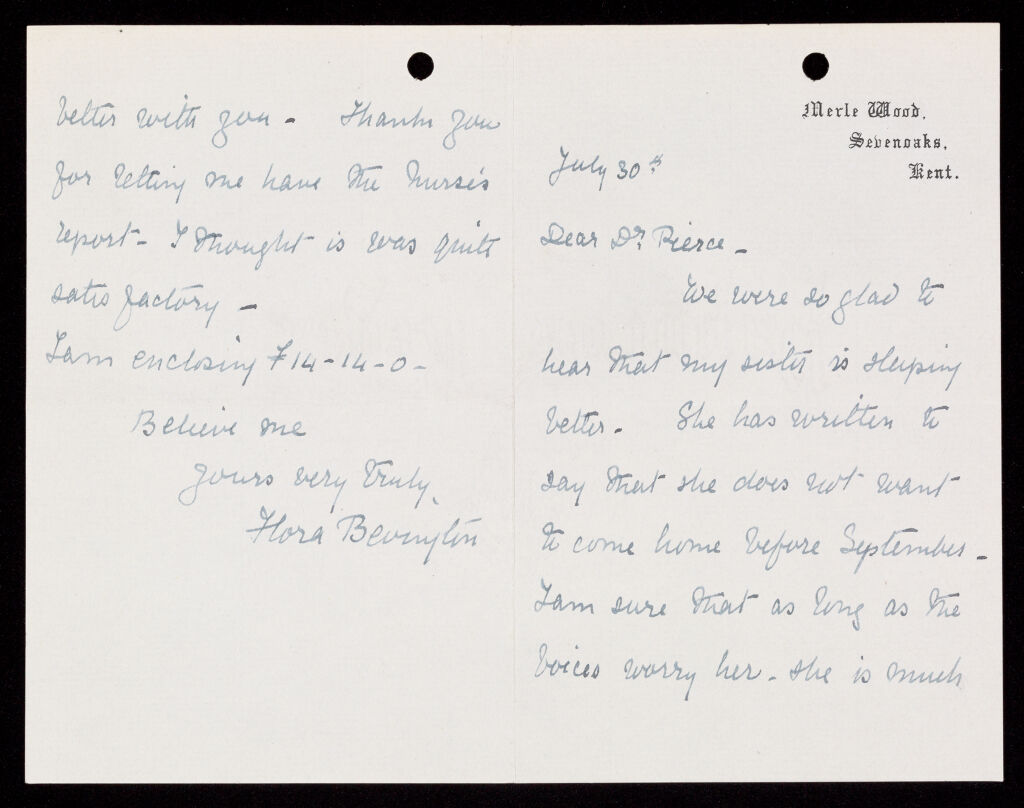 Merle Wood,
Sevenoaks,
Kent.
July 30th
Dear Dr. Pierce -
We were so glad to
hear that my sister is sleeping
better - She has written to
say that she does not want
to come home before September -
I am sure that as long as the
voices worry her - she is much
better with you - Thank you
for letting me have the Nurse's
report - I thought is was quite
satisfactory -
I am enclosing £14-14-0-
Believe me
yours very truly,
Flora Bevington